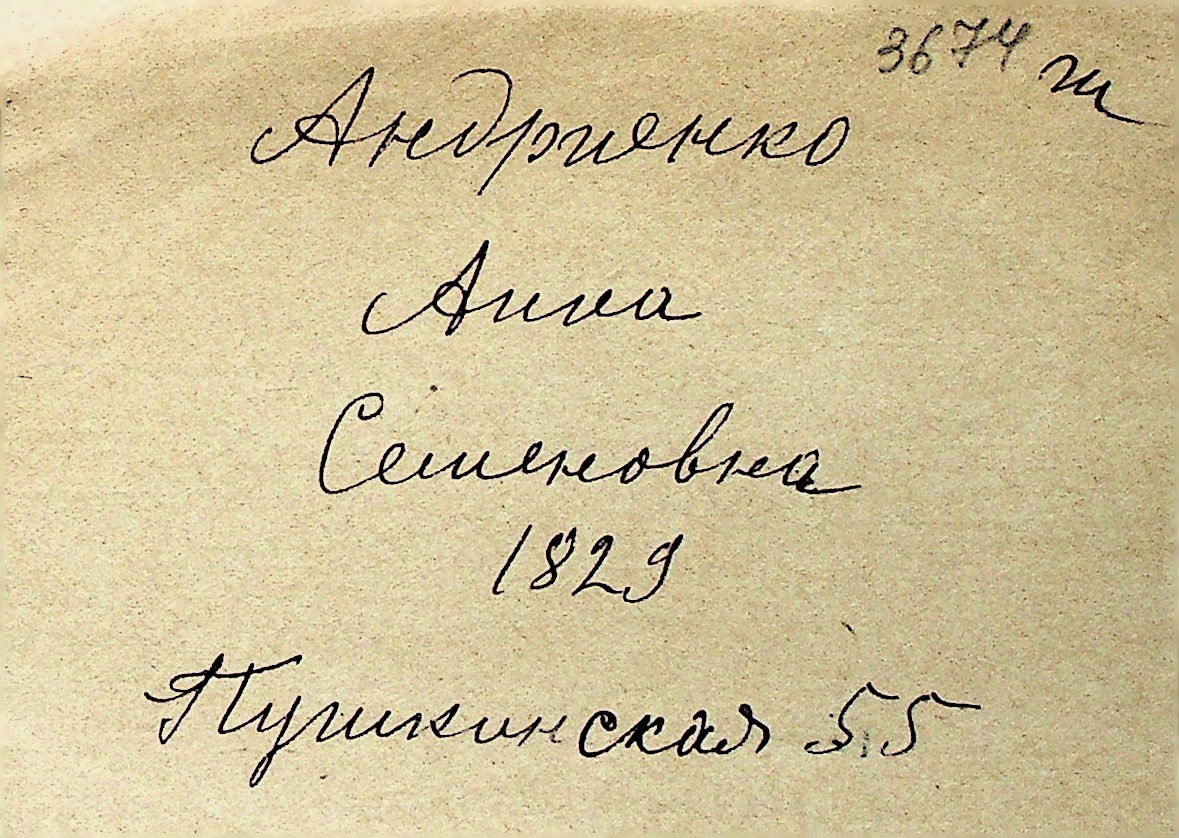 3674 ж
Андриенко
Анна
Семеновна
1829
Пушкинская 55